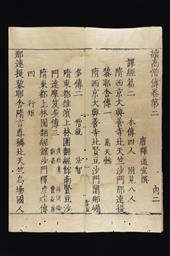 續高僧傳卷第二
唐釋道宣撰
譯經篇二 本傳四人 附見八人
隋西京大興善寺北天竺沙門那連
提黎耶舍傳一
隋西京大興善寺北賢豆沙門闍那崛
多傳二
隋東都雒濱上林園翻經館南賢豆沙
門達摩笈多傳三
隋東都上林園翻經館沙門釋彥琮傳
四 行矩
那連提黎耶舍隋言尊稱北天竺烏場國人